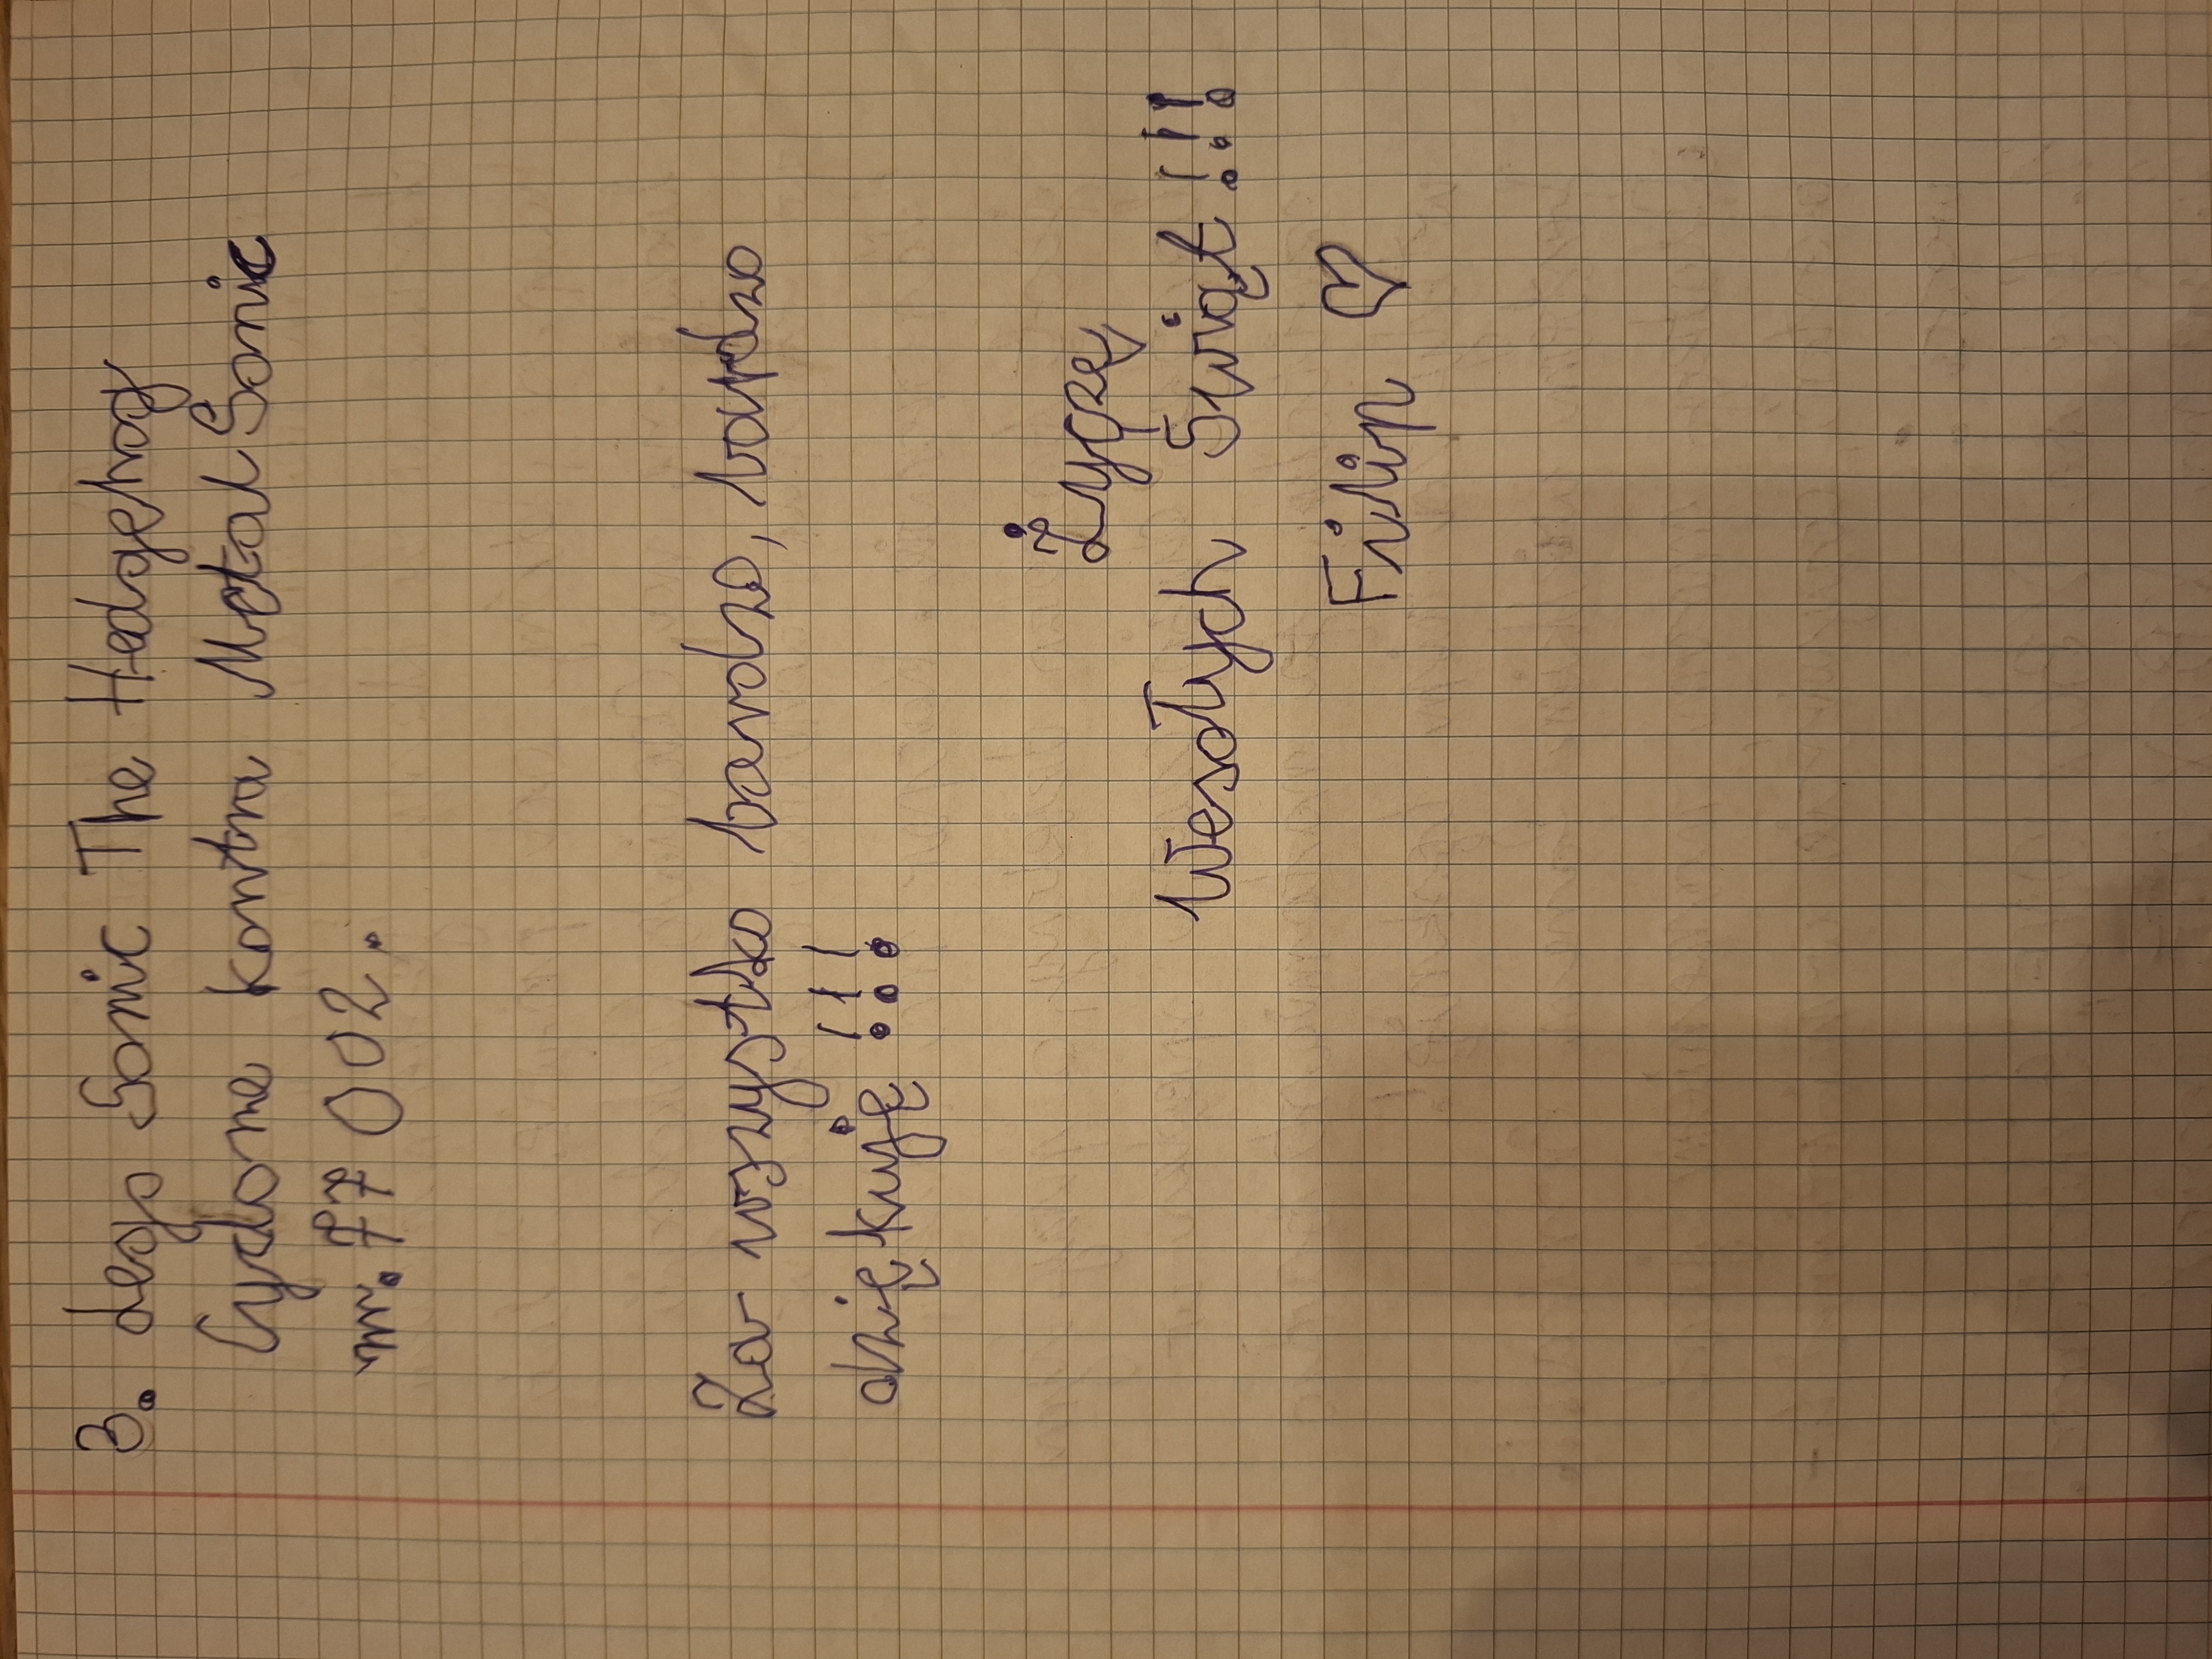 3. Lego Sonic The Hedgehog
Cyclone kontra Metal Sonic
nr. 77 002.
Za wszystko bardzo, bardzo
dziękuję!!!
Życzę,
Wesołych Świąt!!!
Filip ♡